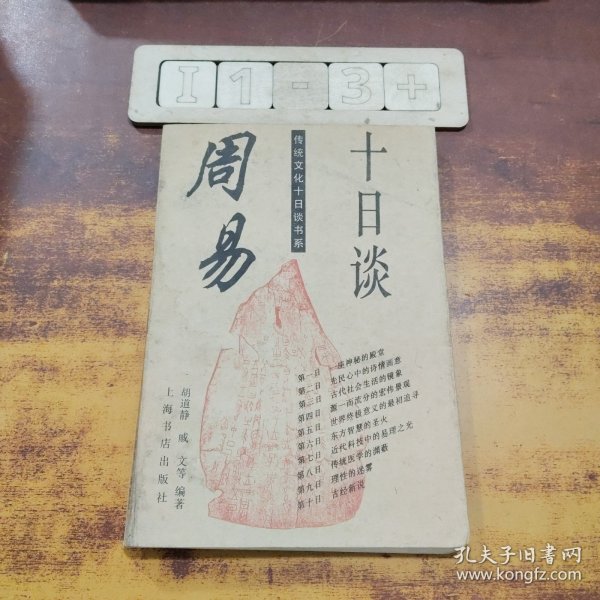 I1-3+
周易
传统文化十日谈书系
十日谈
第一日 一座神秘的殿堂
第二日 先民心中的诗情画意
第三日 古代社会生活的镜象
第四日 源一而流分的宏伟景观
第五日 世界终极意义的最初追寻
第六日 东方智慧的圣火
第七日 近代科技中的易理之光
第八日 传统医学的渊薮
第九日 理性的迷雾
第十日 古经新说
胡道静 戚文等 编著
上海书店出版社
孔夫子旧书网
www.kongfz.com